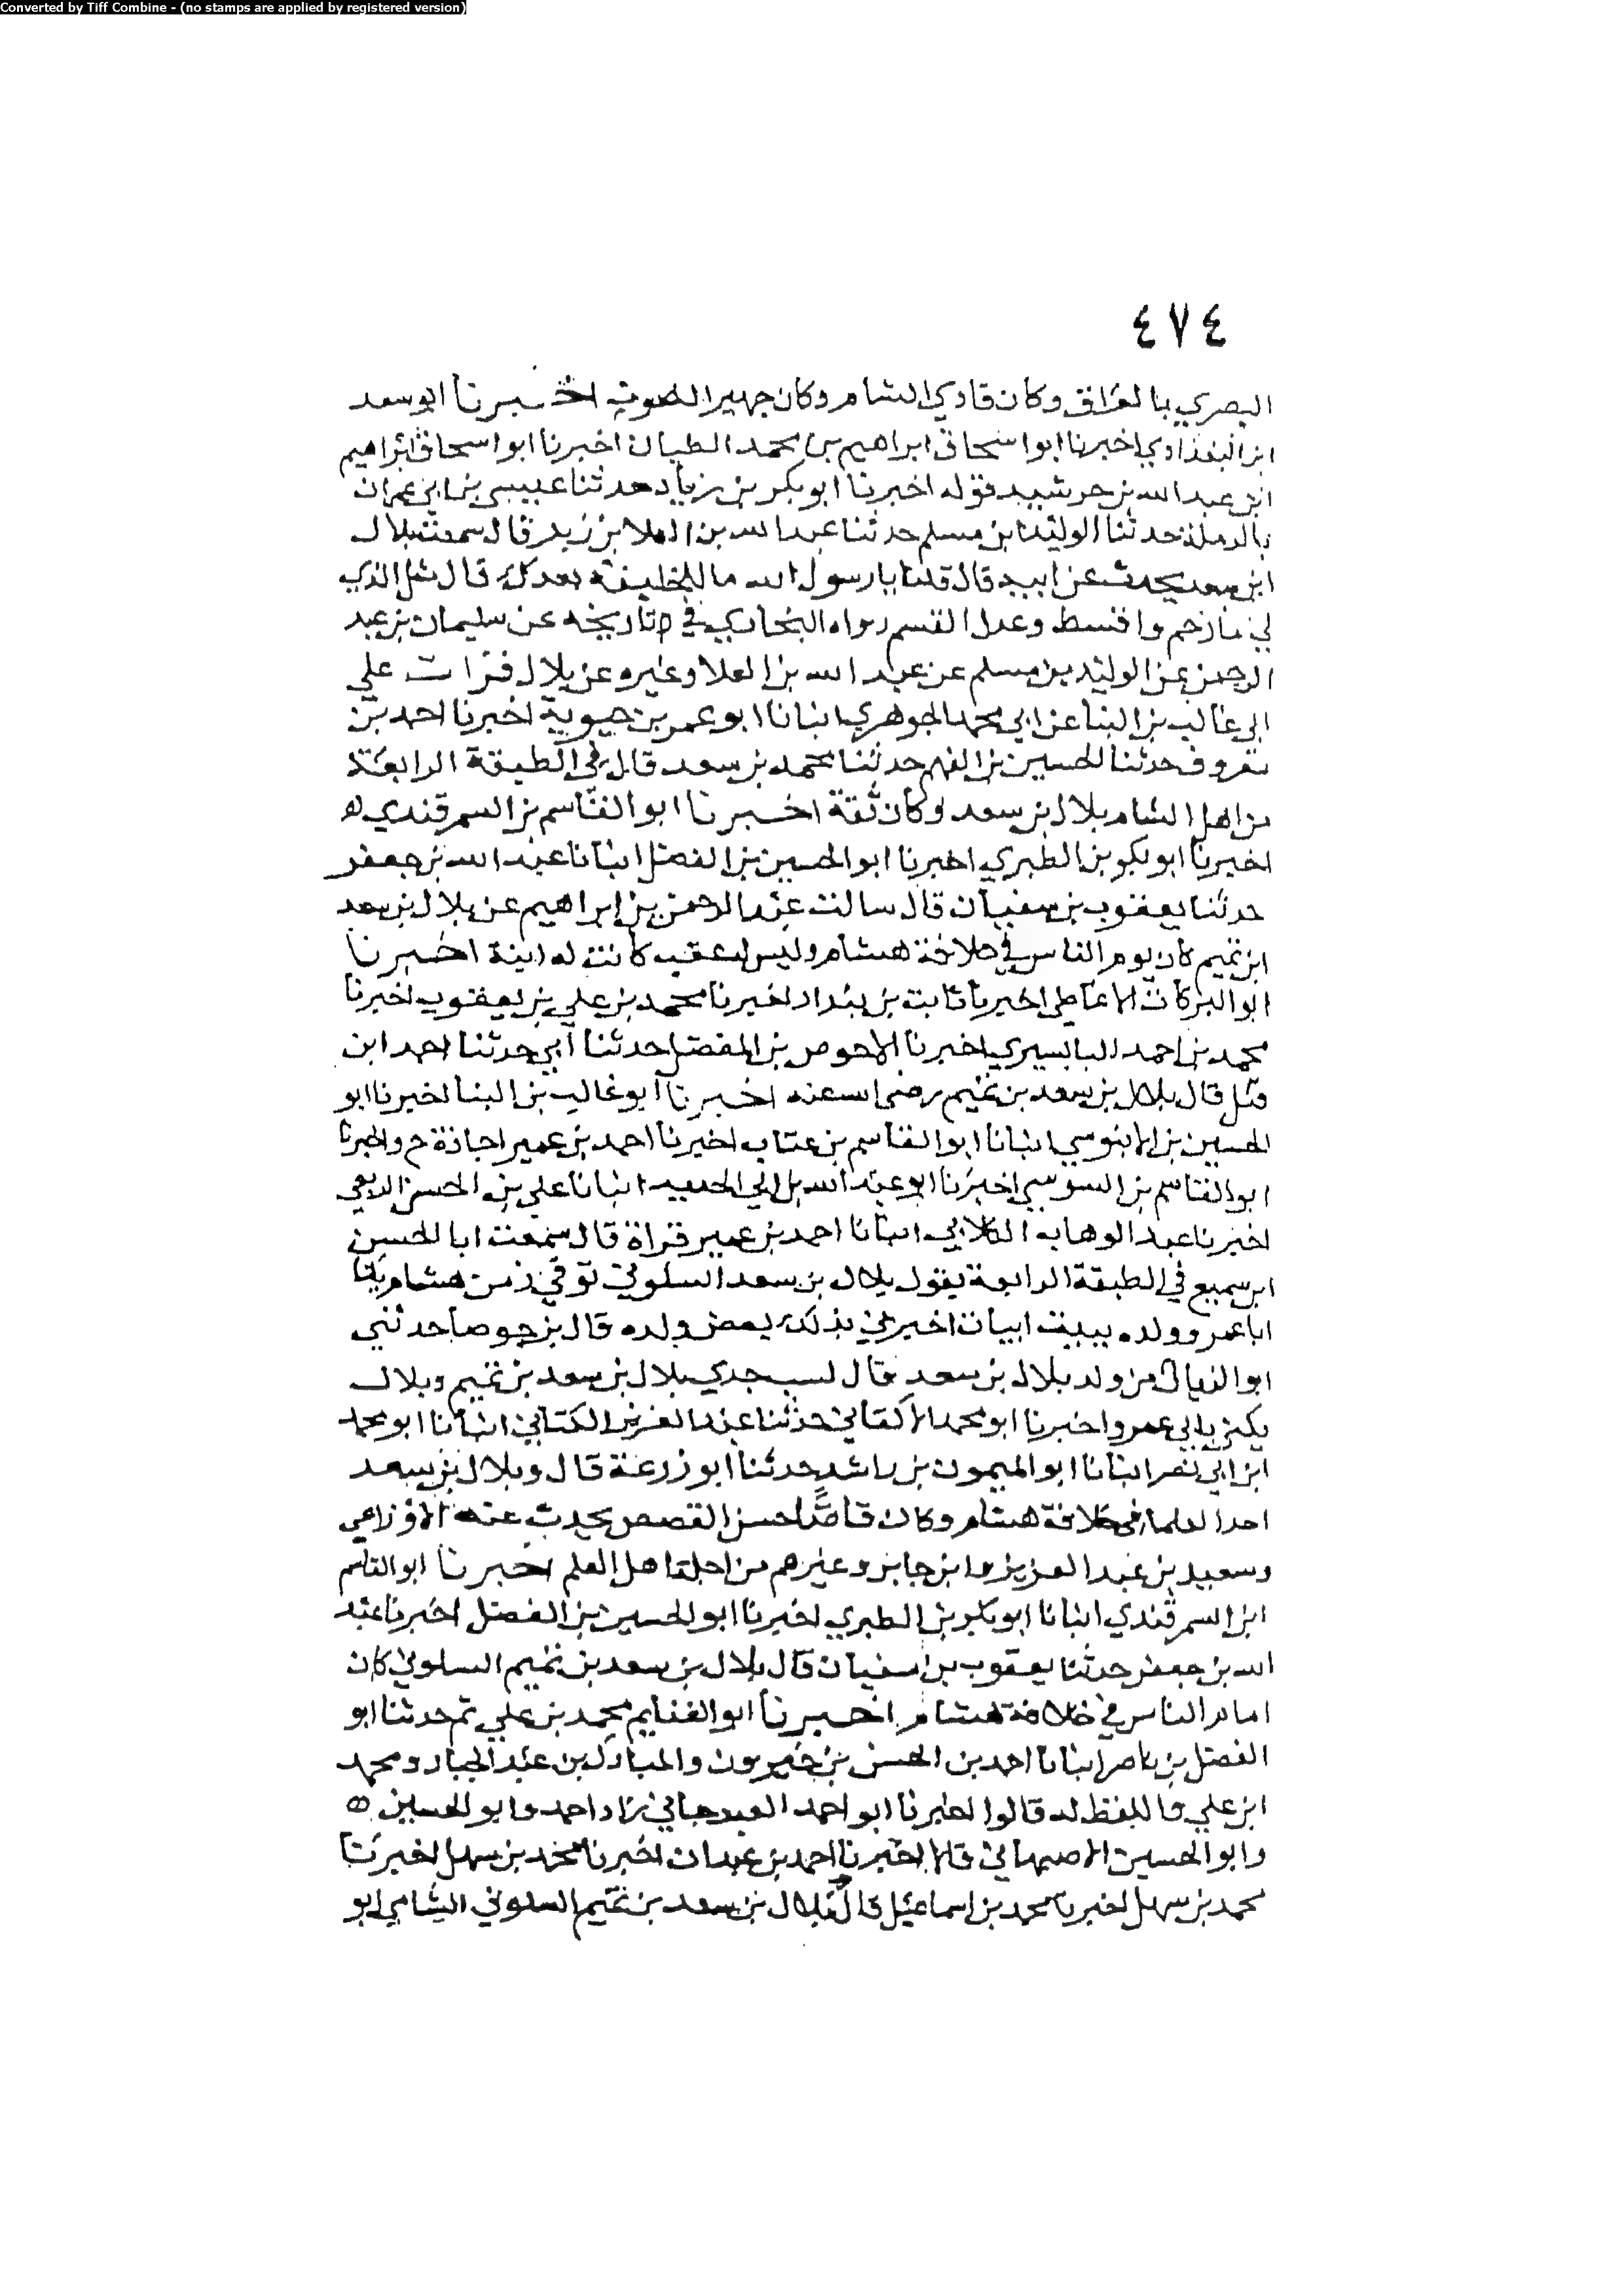 Converted by Tiff Combine - (no stamps are applied by registered version)
٤٧٤
البصري بالعراق وكان قاري الشام وكان جهير الصوت اخبرنا ابو سعد
ابن البغدادي اخبرنا ابو اسحاق ابراهيم بن محمد الطيان اخبرنا ابو اسحاق ابراهيم
ابن عبد الله بن خرشيد قوله اخبرنا ابو بكر بن زياد حدثنا عيسى بن ابي عمران
بالرملة حدثنا الوليد بن مسلم حدثنا عبد الله بن العلا بن زبر قال سمعت بلال
ابن سعد يحدث عن ابيه قال قلنا يا رسول الله ما للخليفة بعدك قال مثل الذي
لي ما رحم واقسط وعدل القسم رواه البخاري في تاريخه عن سليمان بن عبد
الرحمن عن الوليد بن مسلم عن عبد الله بن العلا وغيره عن بلال قرات علي
ابي غالب بن البنا عن ابي محمد الجوهري انبانا ابو عمر بن حيوية اخبرنا احمد بن
معروف حدثنا الحسين بن الفهم حدثنا محمد بن سعد قال في الطبقة الرابعة
من اهل الشام بلال بن سعد وكان ثقة اخبرنا ابو القاسم بن السمرقندي
اخبرنا ابو بكر بن الطبري اخبرنا ابو الحسين بن الفضل انبانا عبد الله بن جعفر
حدثنا يعقوب بن سفيان قال سالت عبد الرحمن بن ابراهيم عن بلال بن سعد
ابن تميم كان يوم الناس في خلافة هشام وليس له عقب كانت له ابنة اخبرنا
ابو البركات الانماطي اخبرنا ثابت بن بندار اخبرنا محمد بن علي بن يعقوب اخبرنا
محمد بن احمد البابسيري اخبرنا الاحوص بن المفضل حدثنا ابي حدثنا احمد ابن
قال بلال بن سعد بن تميم رضي الله عنه اخبرنا ابو غالب بن البنا اخبرنا ابو
الحسين بن الابنوسي انبانا ابو القاسم بن عتاب اخبرنا احمد بن عمير اجازة ح واخبرنا
ابو القاسم بن السوسي اخبرنا ابو عبد الله بن ابي الحديد انبانا علي بن الحسن الربعي
اخبرنا عبد الوهاب الكلابي انبانا احمد بن عمير قراة قال سمعت ابا الحسين
ابن سميع في الطبقة الرابعة يقول بلال بن سعد السكوني توفي زمن هشام يكنا
ابا عمرو وولده ببيت ابيات اخبرني بذلك بعض ولده قال بن جوصا حدثني
ابو الذيال من ولد بلال بن سعد قال نسب جدي بلال بن سعد بن تميم وبلال
يكنى بابي عمرو اخبرنا ابو محمد الاكفاني حدثنا عبد العزيز الكتاني انبانا ابو محمد
ابن ابي نصر انبانا ابو الميمون بن راشد حدثنا ابو زرعة قال وبلال بن سعد
احد العلما في خلافة هشام وكان قاصا حسن القصص يحدث عنه الاوزاعي
وسعيد بن عبد العزيز وابن جابر وغيرهم من اجلة اهل العلم اخبرنا ابو القاسم
ابن السمرقندي انبانا ابو بكر بن الطبري اخبرنا ابو الحسين بن الفضل اخبرنا عبد
الله بن جعفر حدثنا يعقوب بن سفيان قال بلال بن سعد بن تميم السلوني كان
امام الناس في خلافة هشام اخبرنا ابو الغنايم محمد بن علي ثم حدثنا ابو
الفضل بن ناصر انبانا احمد بن الحسن بن خيرون والمبارك بن عبد الجبار ومحمد
ابن علي واللفظ له قالوا اخبرنا ابو احمد زاد احمد وابو الحسين
وابو الحسين الاصبهاني قالا اخبرنا احمد بن عبدان اخبرنا محمد بن سهل اخبرنا
محمد بن سهل اخبرنا محمد بن اسماعيل قال بلال بن سعد بن تميم السلوني الشامي ابو